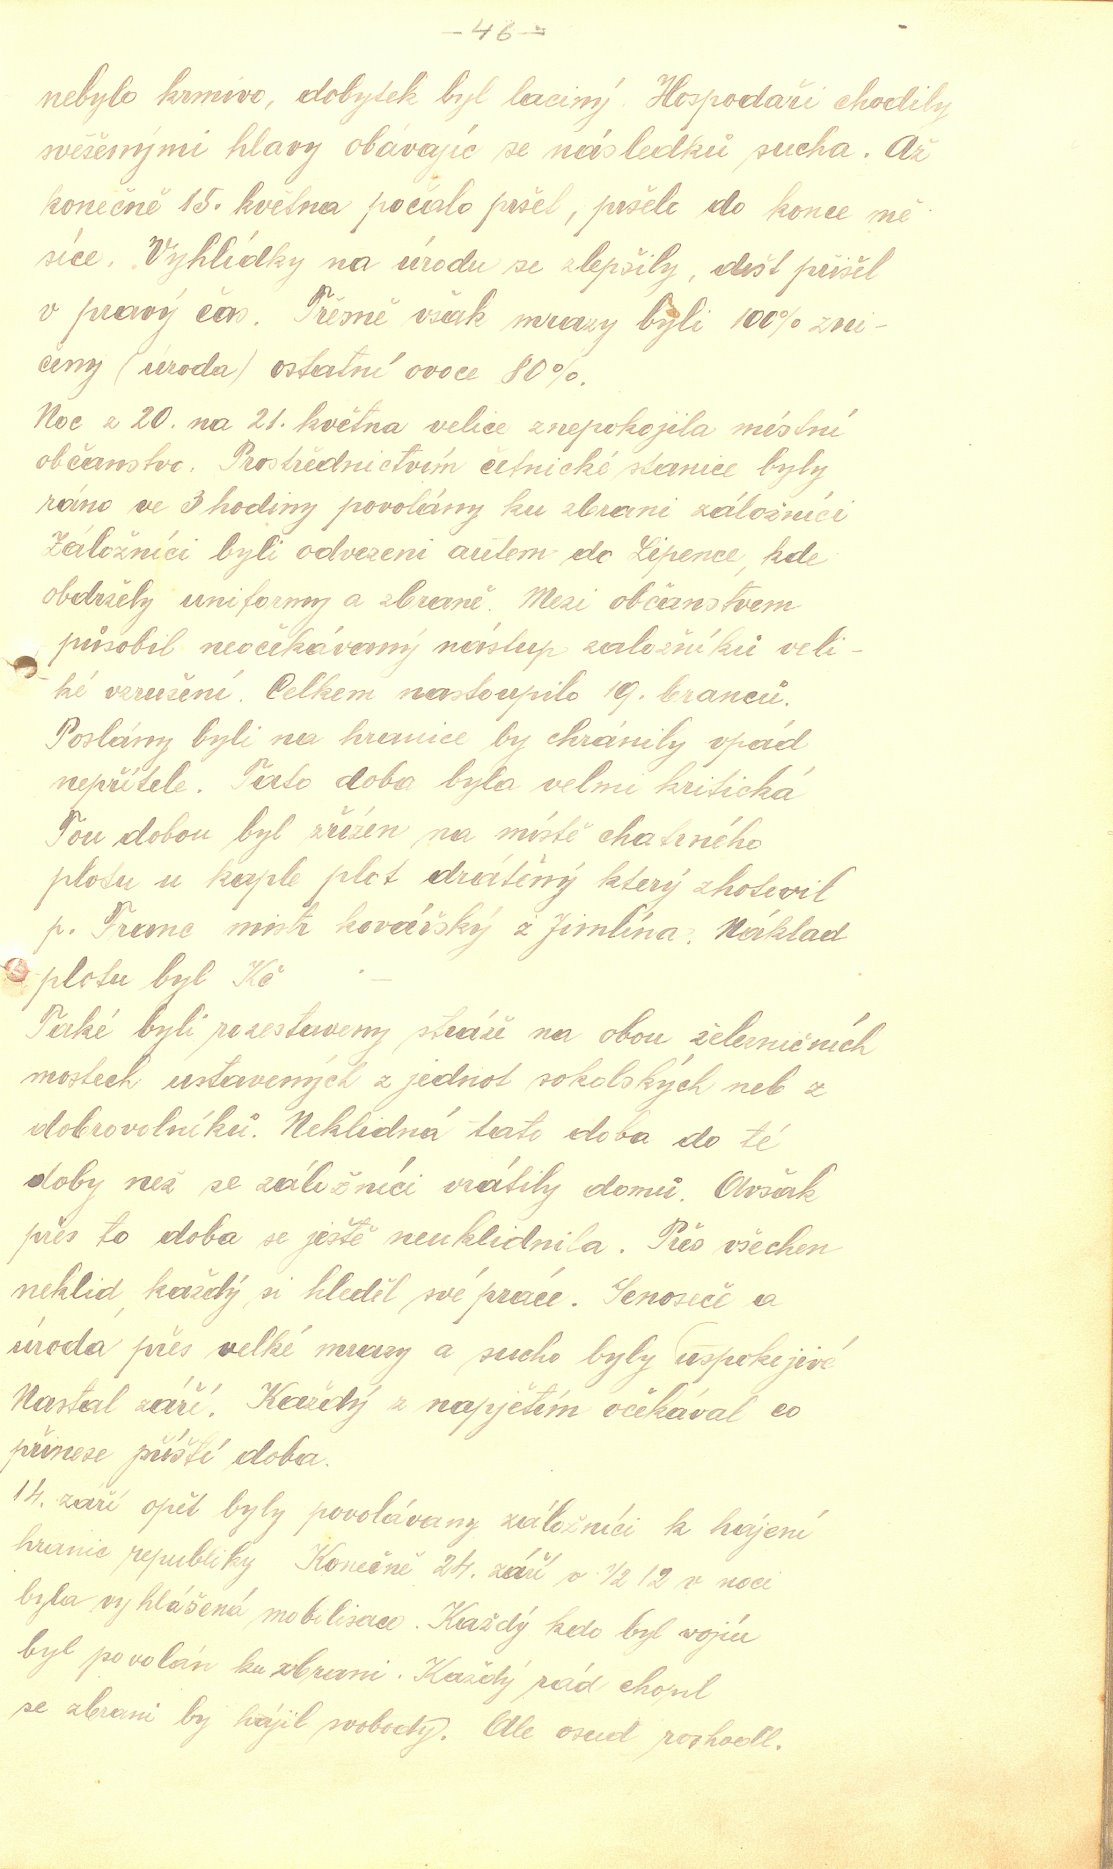 – 46 –
nebylo krmivo, dobytek byl laciný. Hospodaři chodily
svěšenými hlavy obávajíc se následků sucha. Až
konečně 15. května počalo pršet, pršelo do konce mě
síce. Vyhlídky na úrodu se zlepšily, dešt přišel
v pravý čas. Třešně však mrazy byli 100% zni-
čeny (úroda) ostatní ovoce 80%.
Noc z 20. na 21. května velice znepokojila místní
občanstvo. Prostřednictvím četnické stanice byly
ráno ve 3 hodiny povolány ku zbrani záložníci
Záložníci byli odvezeni autem do Lipence, kde
obdržely uniformy a zbraně. Mezi občanstvem
působil neočekávaný nástup záložníků veli-
ké vzrušení. Celkem nastoupilo 19. branců.
Poslány byli na hranice by chránily vpád
nepřítele. Tato doba byla velmi kritická
Tou dobou byl zřízen na místě chatrného
plotu u kaple plot drátěný který zhotovil
p. Franc mistr kovářský z Jimlína. Náklad
plotu byl Kč –
Také byli rozestaveny stráže na obou železničních
mostech ustavených z jednot sokolských neb z
dobrovolníků. Neklidná tato doba do té
doby než se záložníci vrátily domů. Avšak
přes to doba se ještě neuklidnila. Přes všechen
neklid, každý si hleděl své práce. Senoseče a
úroda přes velké mrazy a sucho byly uspokojivé
Nastal září. Každý z napjetím očekával co
přinese příští doba.
14. září opět byly povolávany záložníci k hájení
hranic republiky Konečně 24. září o 1/2 12 v noci
byla vyhlášená mobilisace. Každý kdo byl vojín
byl povolán ku zbrani. Každý rád chopil
se zbrani by hájil svobody. Ale osud rozhodl.